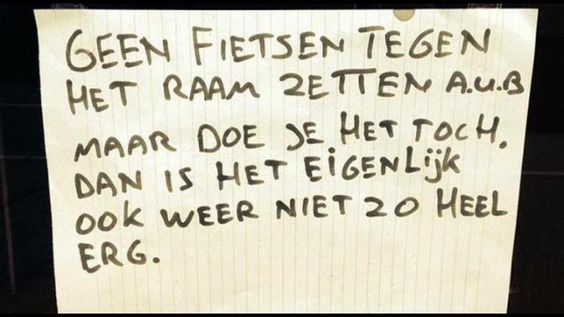 GEEN FIETSEN TEGEN
HET RAAM ZETTEN A.U.B
MAAR DOE JE HET TOCH.
DAN IS HET EIGENLIJK
OOK WEER NIET ZO HEEL
ERG.